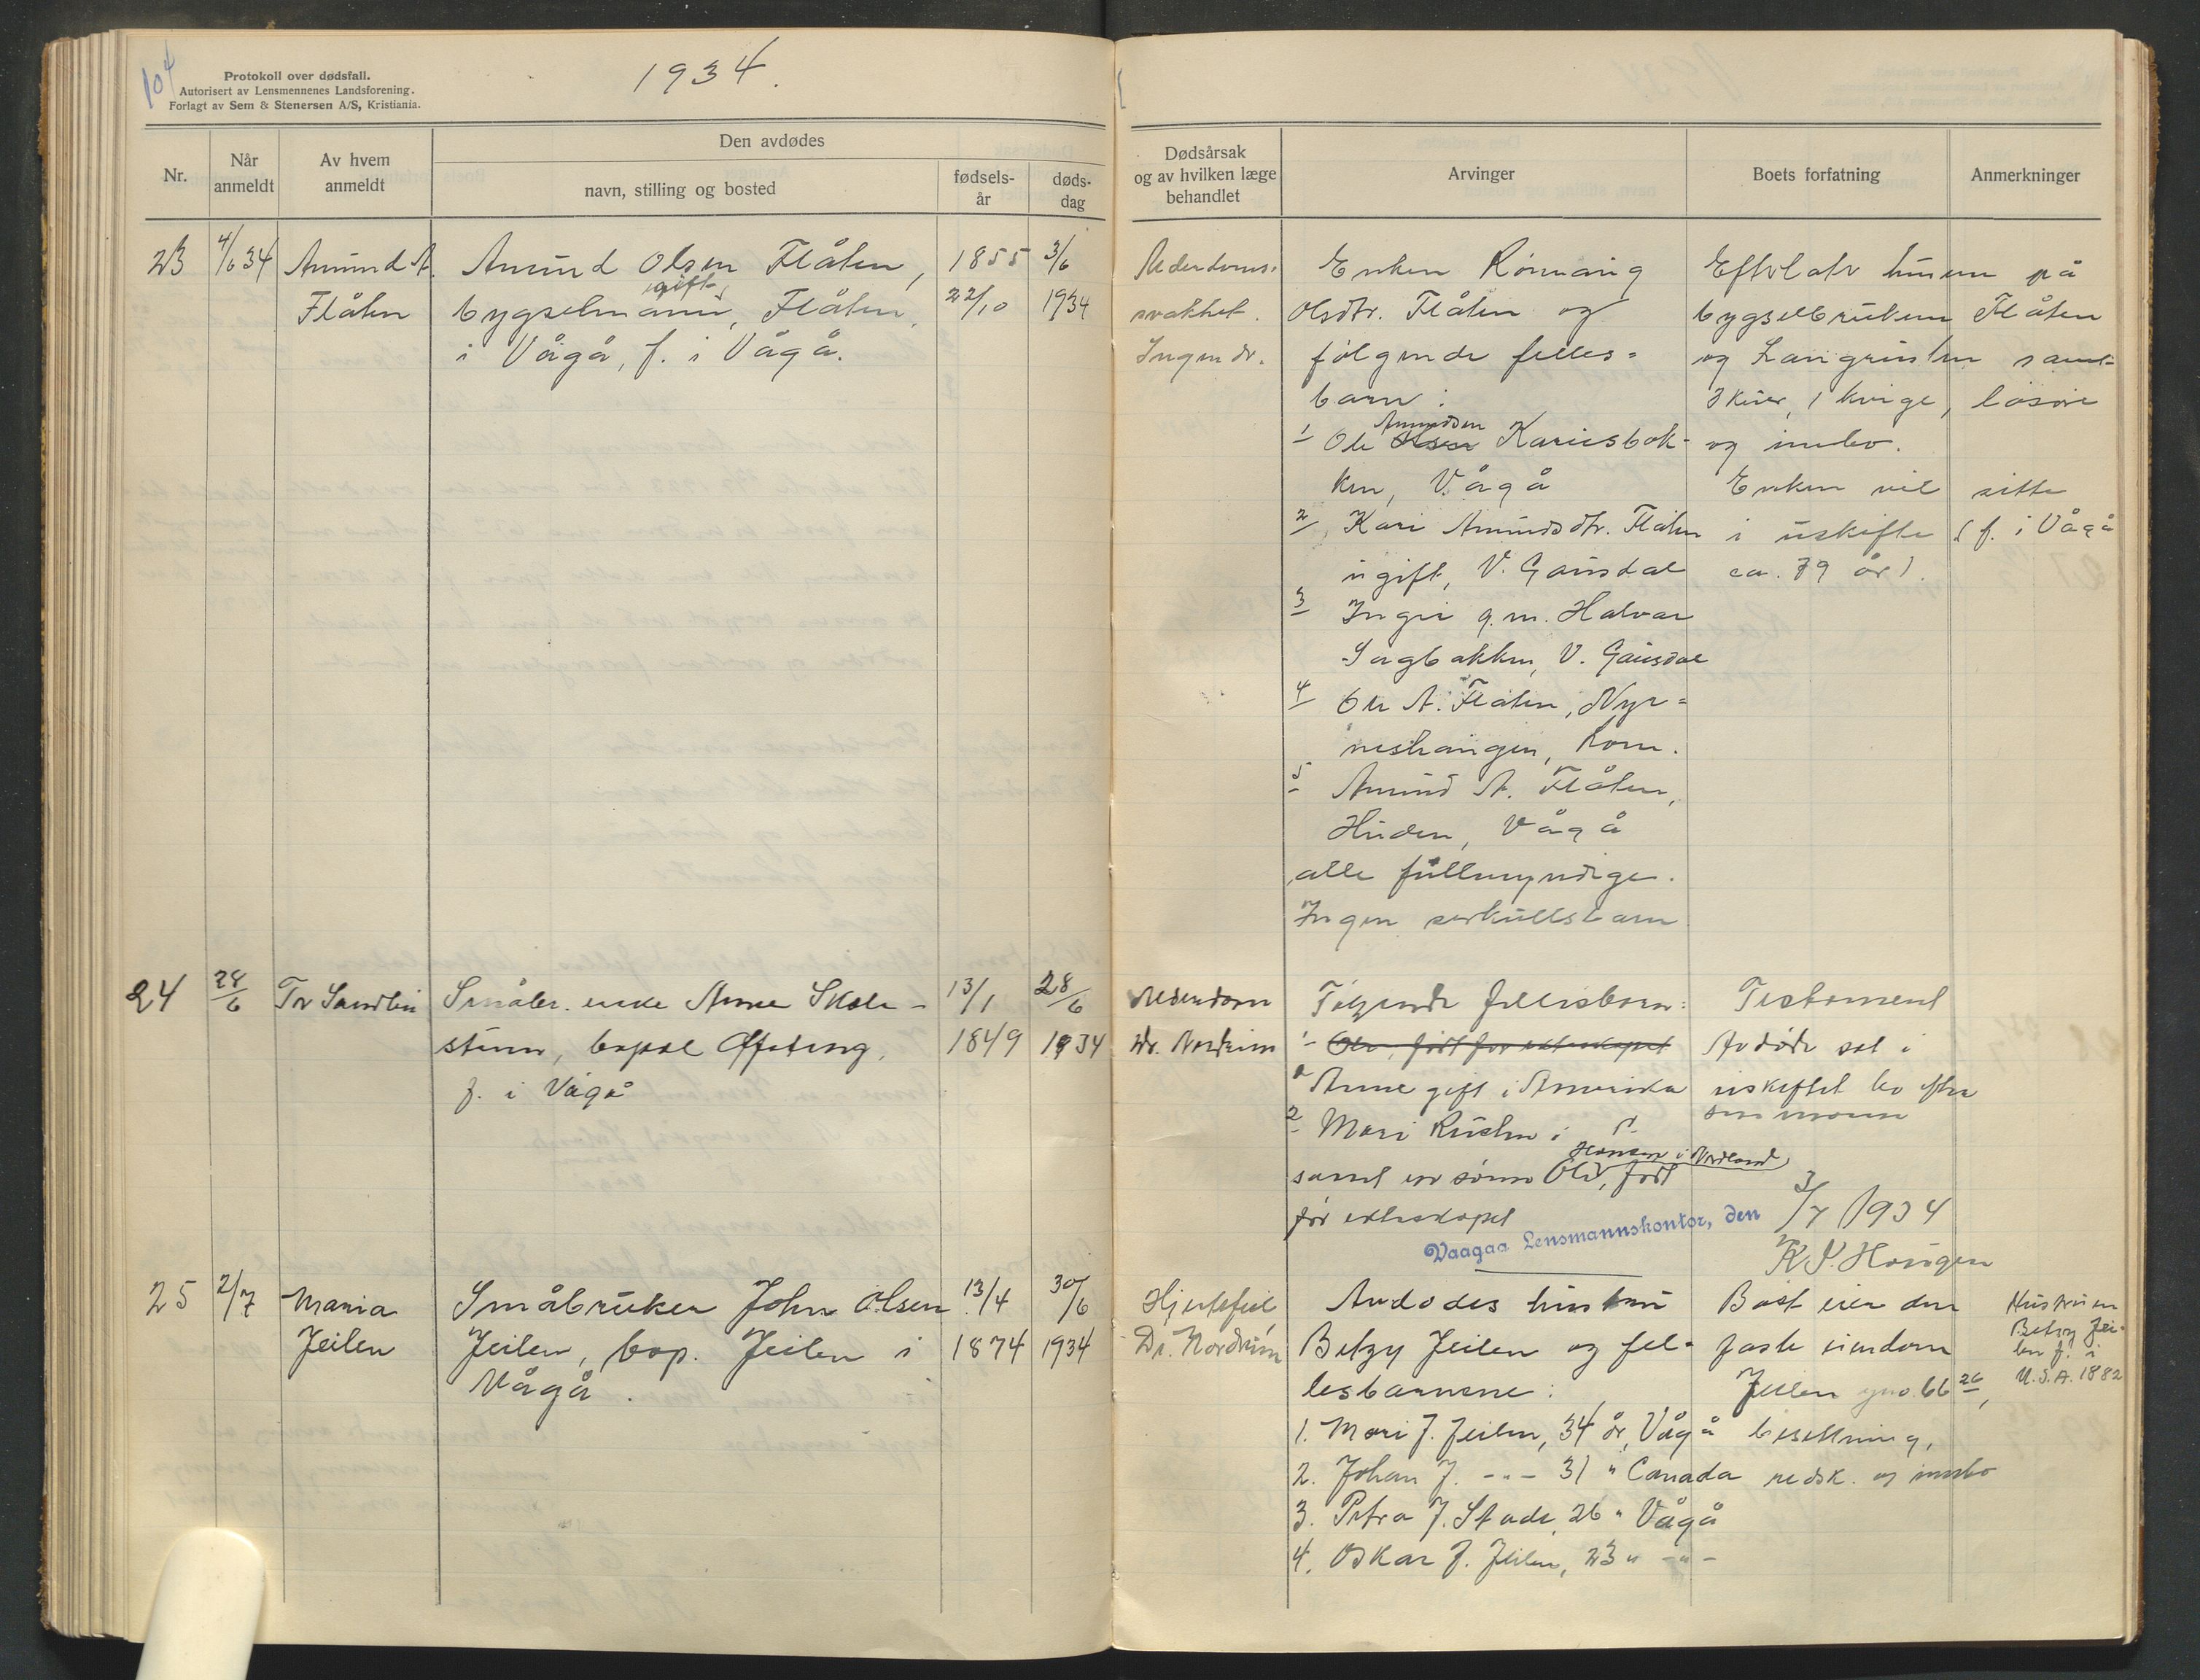 104
Protokoll over dødsfall.
Autorisert av Lensmennenes Landsforening.
Forlagt av Sem & Stenersen A/S, Kristiania.
1934.
Nr.
Når anmeldt
Av hvem anmeldt
Den avdødes
navn, stilling og bosted
fødsels-år
døds-dag
Dødsårsak og av hvilken læge behandlet
Arvinger
Boets forfatning
Anmerkninger
23 4/6 34 Amund A. Amund Olsen Flåten, 1855 3/6
gift,
Flåten bygselmann, Flåten, 22/10 1934
i Vågå, f. i Vågå.
Alderdoms-
svakhet.
Ingen dr.
Enken Rønnaug
Olsdtr. Flåten og
følgende felles=
barn:
Amundsen
1 Ole Olsen Kariesbak-
ken, Vågå
2 Kari Amundsdtr. Flåten
ugift, V. Gausdal
3 Ingri g.m. Halvar
bakken, V. Gausdal
4 Ole A. Flåten,
5 Amund A. Flåten,
Vågå
alle fullmyndige.
Ingen særkullsbarn
Efterlater husene på
bygselbruken Flåten
og samt
3 kuer, 1 kvige, løsøre
og innbo.
Enken vil sitte
i uskifte (f. i Vågå
ca. 79 år).
24 28/6 Tor Sandbu Småbr. enke Anne Skole- 13/1 28/6
stuen, bopæl 1849 1934
f. i Vågå
Alderdom
Dr. Nordrum
Følgende fellesbarn:
1 Ole, født før ekteskapet
1 Anne gift i Amerika
2 Mari Rusten i
Hansen i Nordland
samt en sønn Ole, født
før ekteskapet
Testament
Avdøde sat i
uskiftet bo efter
sin mann
Vaagaa Lensmannskontor, den 3/7 1934
K. Haugen
25 2/7 Maria Småbruker John Olsen 13/4 30/6
Jeilen Jeilen, bop. Jeilen i 1874 1934
Vågå.
Hjertefeil,
Dr. Nordrum
Avdødes hustru
Betzy Jeilen og fel-
lesbarnene:
1. Mari J. Jeilen, 34 år, Vågå
2. Johan J. -"- 31 " Canada
3. Petra J. Stade, 26 " Vågå
4. Oskar J. Jeilen, 23 " -"-
Boet eier den
faste eiendom
Jeilen gno. 66 26,
besetning,
redsk. og innbo
Hustruen
Betzy Jei-
len f. i
U.S.A. 1882